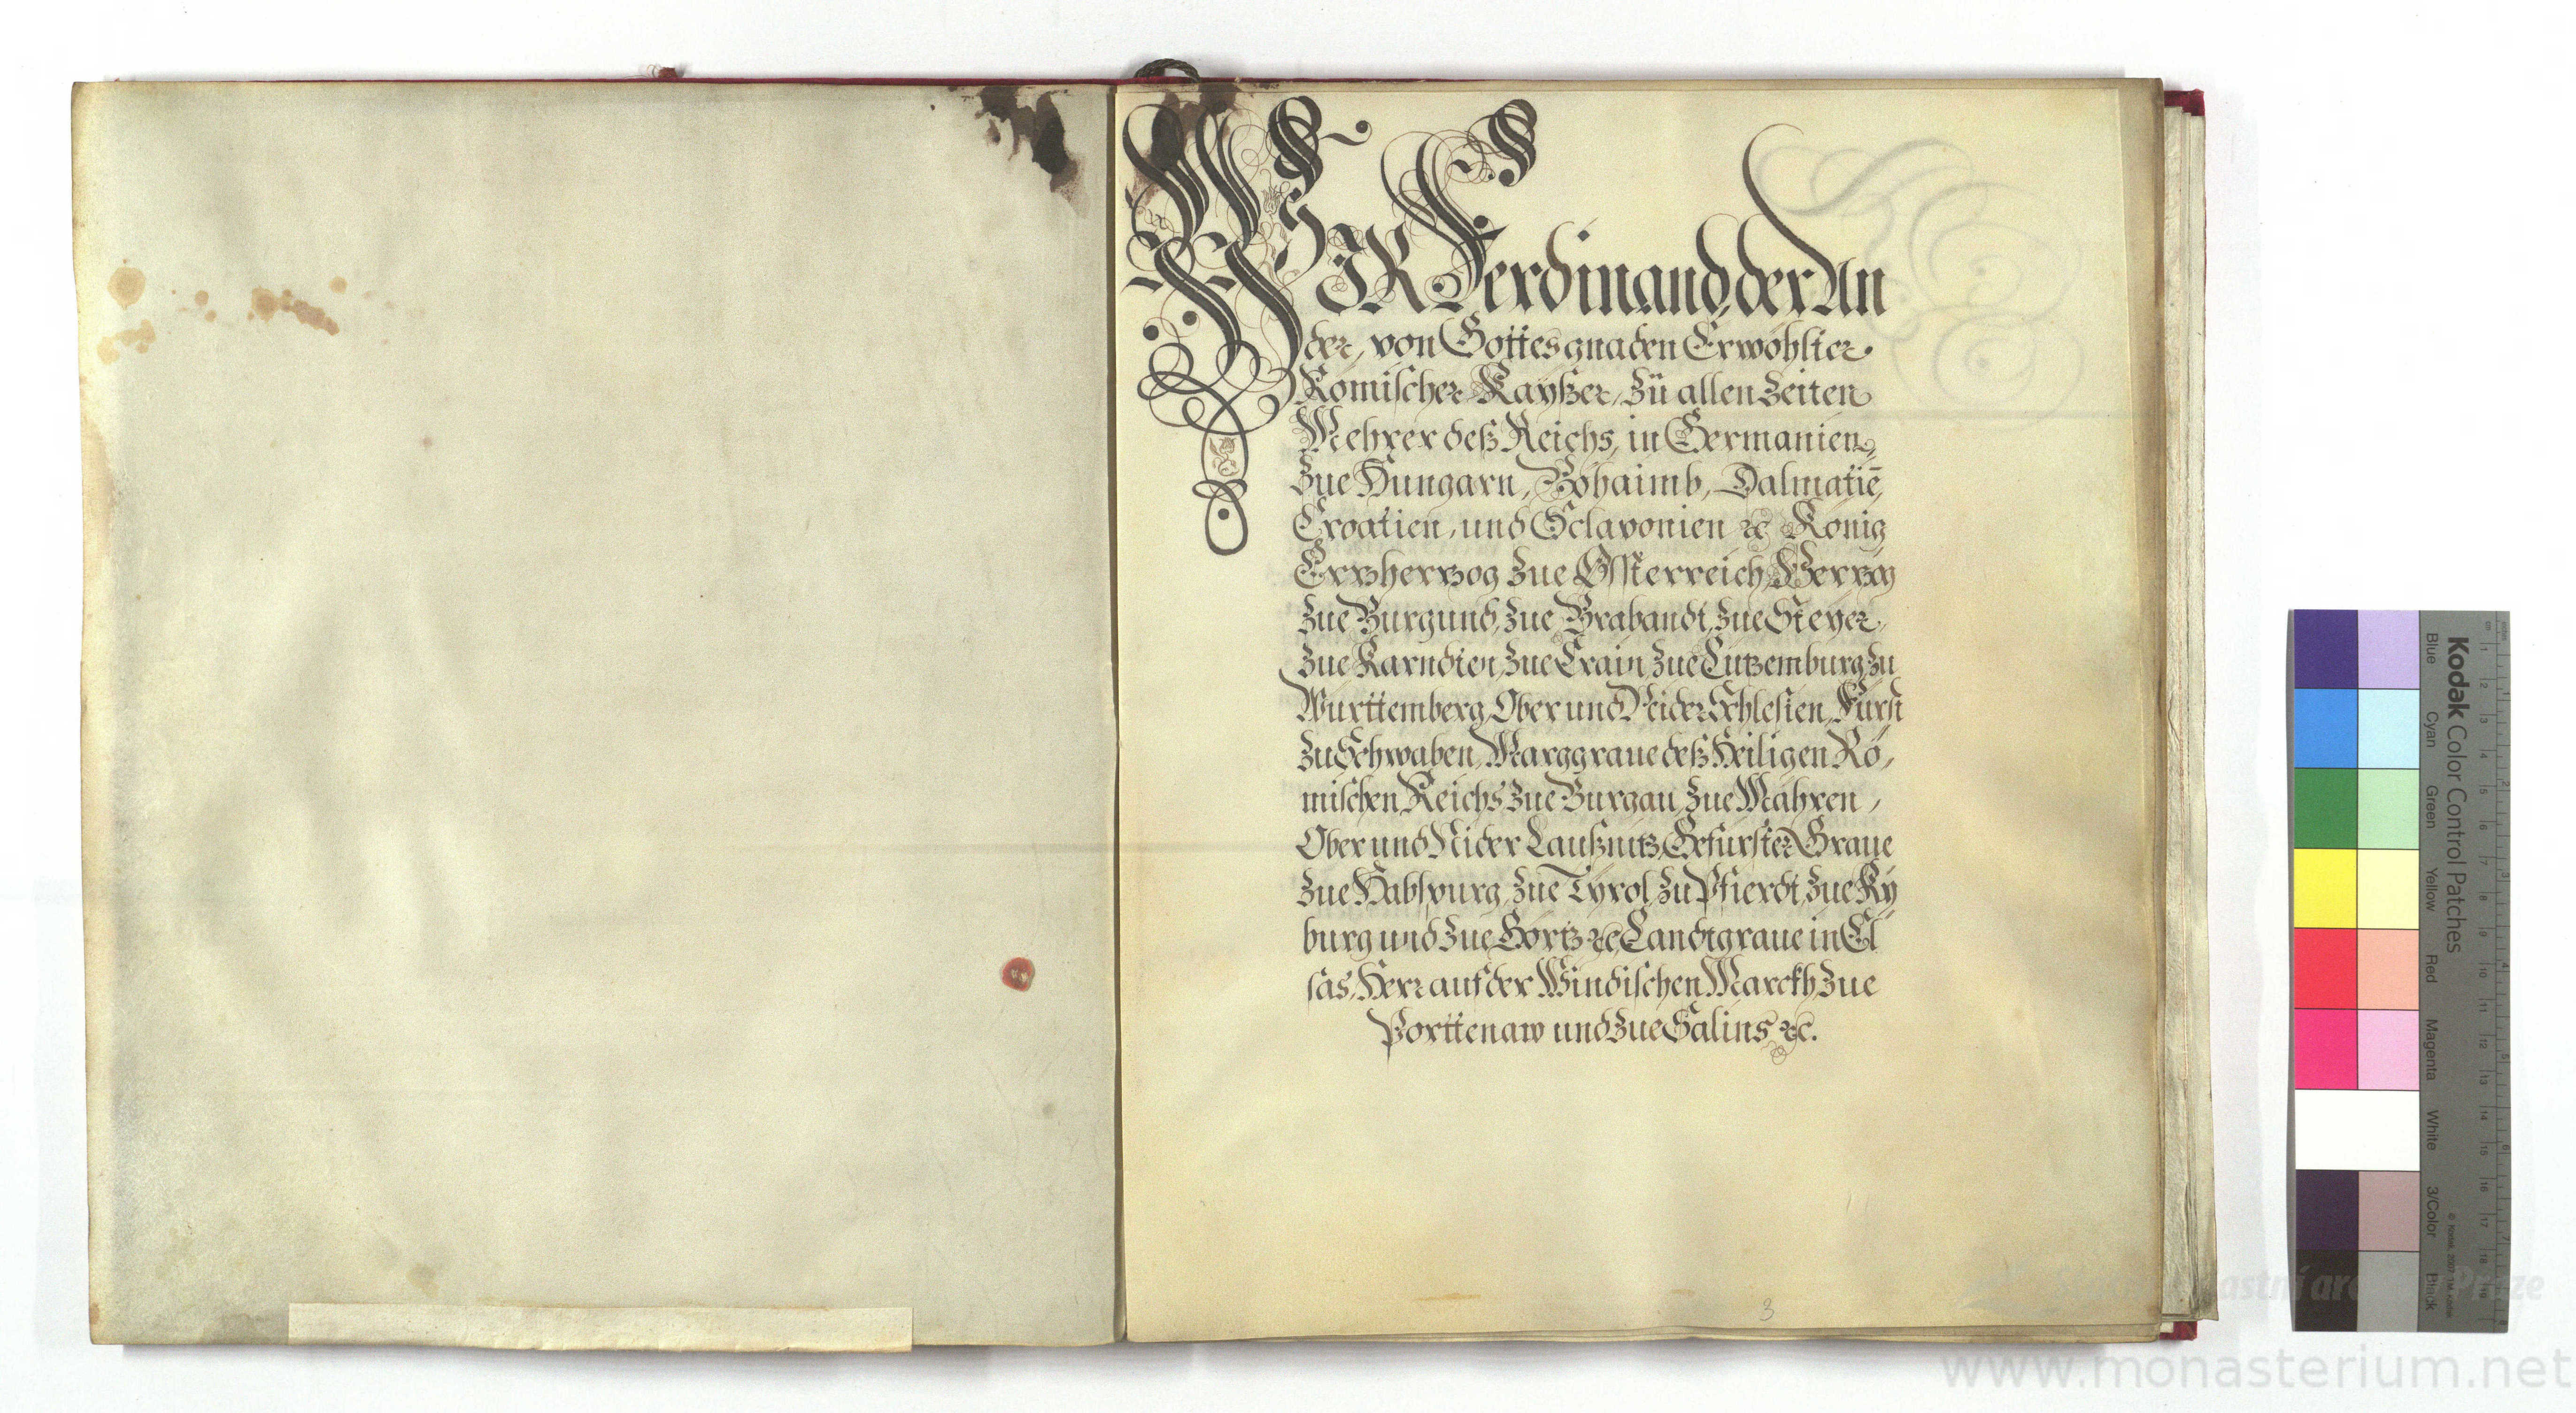 WIR Ferdinand, der An
der, von Gottes gnaden Erwöhlter
Römischer Kayßer, zü allen Zeiten
Mehrer deß Reichs, in Germanien,
Zue Hungarn, Böhaimb, Dalmatiē,
Croatien, und Sclavonien ꝛc König
Ertzhertzog zue Össterreich, Hertzog
zue Burgund, zue Brabandt, zue Steyer,
zue Karndten, zue Crain, zue Lutzemburg, zu
Württemberg, Ober und Nider Schlesien, Fürst
zu Schwaben, Marggraue deß Heiligen Rö,
mischen Reichs zue Burgau, zue Mähren,
Ober und Nider Laußnitz, Gefürster Graue
zue Habspurg, zue Tyrol, zu Pfierdt, zue Ky
burg und zue Görtz ꝛc, Landtgraue in El
sas, Herr auf der Windischen Marckh, zue
Porttenaw und zue Salins ꝛc.
3
Kodak Color Control Patches
Blue Cyan Green Yellow Red Magenta White 3/Color Black
www.monasterium.net